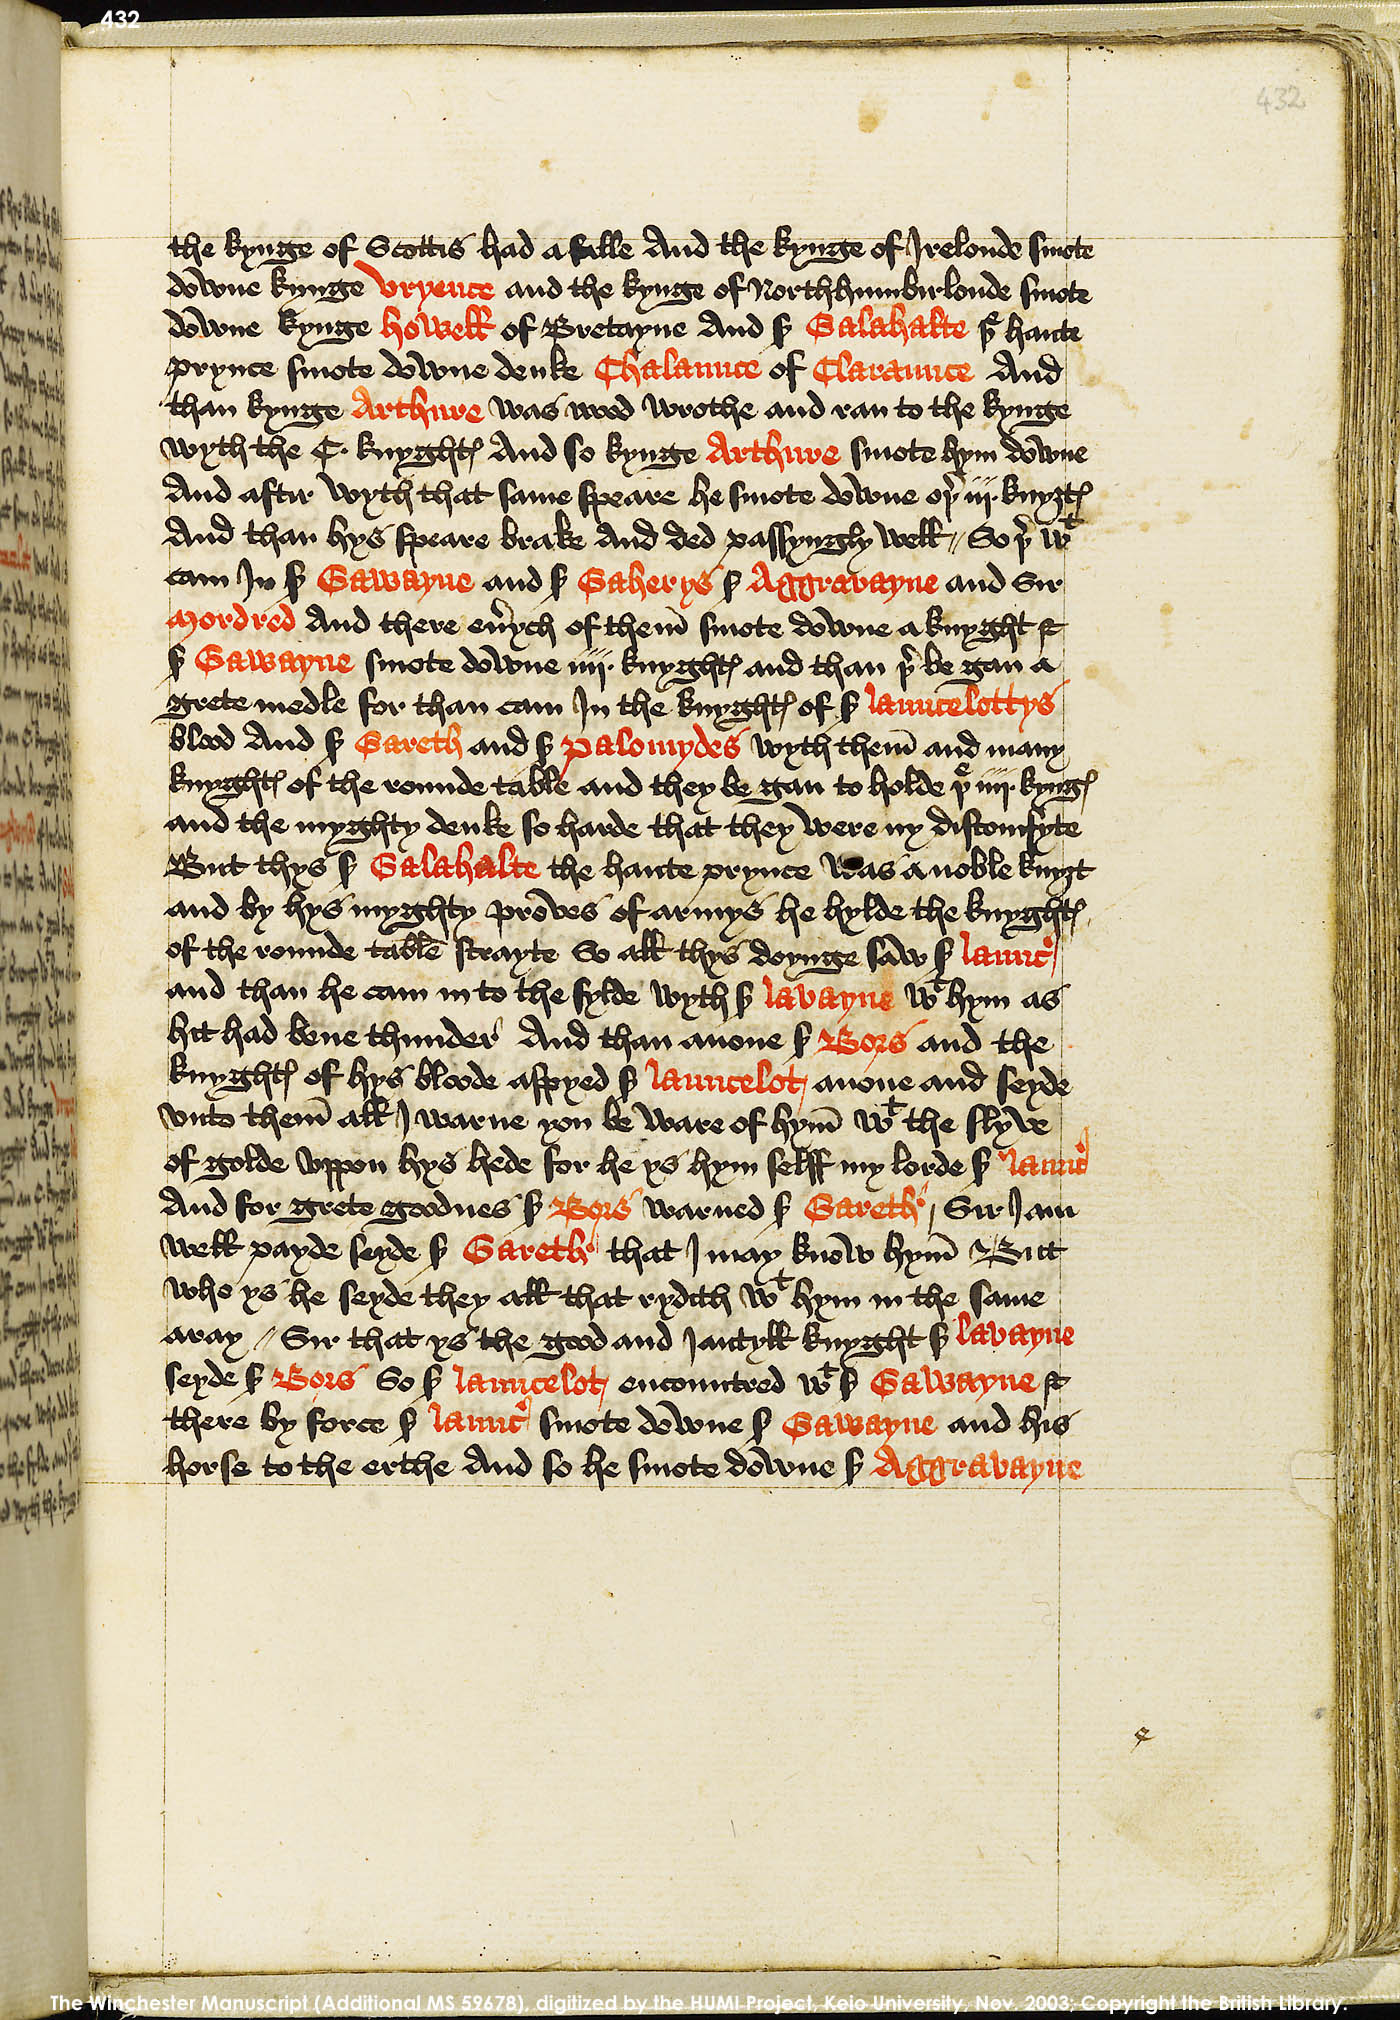 432
432
the kynge of Scottis had a falle And the kynge of Irelonde smote
downe kynge Vryence and the kynge of Northhumbirlonde smote
downe kynge howell of Bretayne And sr Galahalte þe haute
prynce smote downe deuke Chalaunce of Claraunce And
than kynge Arthure was wood wrothe and ran to the kynge
wyth the C. knyghtes And so kynge Arthure smote hym downe
And aftir wyth that same speare he smote downe oþr iij. knyȝtes
And than hys speare brake And ded passyngly well // So þr wt
cam In sr Gawayne and sr Gaherys sr Aggravayne and Sir
Mordred And there eur̉ych of them̄ smote downe a knyght &
sr Gawayne smote downe iiij. knyghtes and than þr be gan a
grete medle for than cam In the knyghtes of sr launcelottys
blood And sr Gareth and sr Palomydes wyth them̄ and many
knyghtes of the rounde table and they be gan to holde þe iiij. kynges
and the myghty deuke so harde that they were ny discomfyte
But thys sr Galahalte the haute prynce was a noble knyȝt
and by hys myghty proves of armys he hylde the knyghtes
of the rounde table strayte So all thys doynge saw sr launc̉
and than he cam in to the fylde wyth sr lavayne wt hym as
hit had bene thunder And than anone sr Bors and the
knyghtes of hys bloode aspyed sr launcelot anone and seyde
vnto them̄ all I warne you be ware of hym̄ wt the slyve
of golde vppon hys hede for he ys hym selff my lorde sr launc̉
And for grete goodnes sr Bors warned sr Gareth / Sir I am
well payde seyde sr Gareth that I may know hym̄ But
who ys he seyde they all that rydith wt hym in the same
aray // Sir that ys the good and Iantyll knyght sr lavayne
seyde sr Bors So sr launcelot encountred wt sr Gawayne &
there by force sr launc̉ smote downe sr Gawayne and his
horse to the erthe And so he smote downe sr Aggravayne
The Winchester Manuscript (Additional MS 59678), digitized by the HUMI Project, Keio University, Nov. 2003; Copyright the British Library.